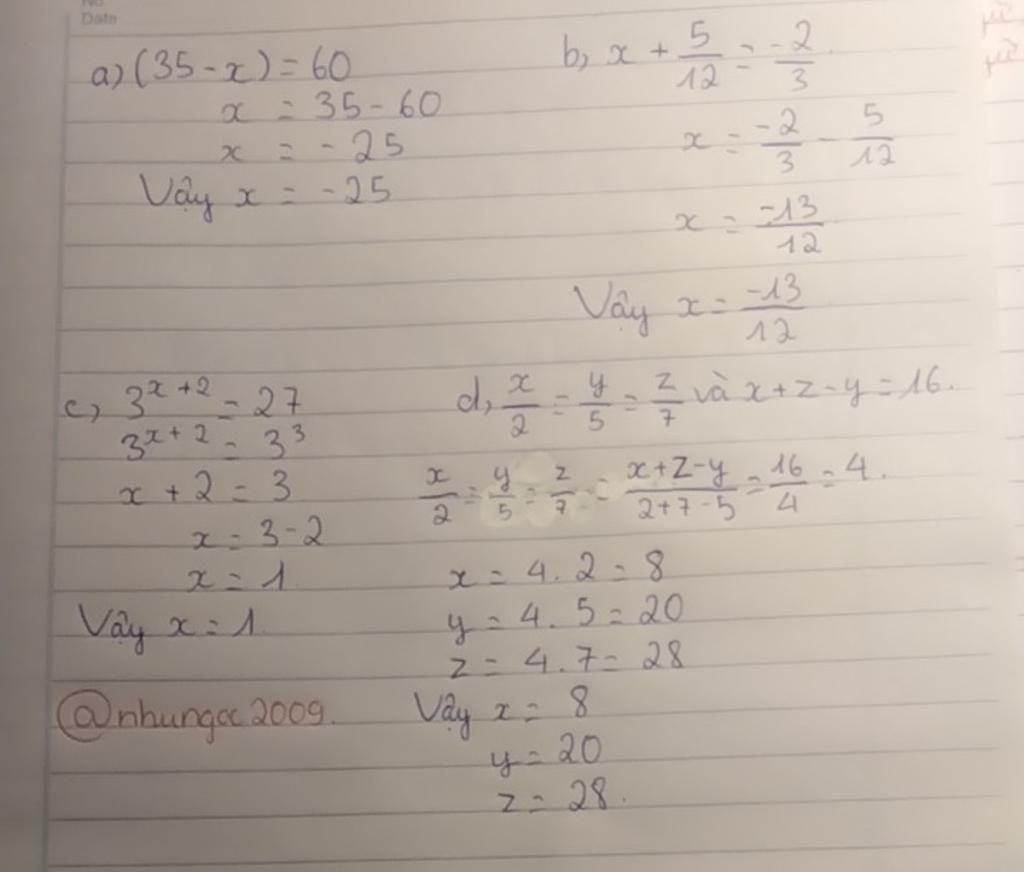 No.
Date
a) (35 - x) = 60
x = 35 - 60
x = - 25
Vậy x = - 25
b, x + 5/12 = -2/3
x = -2/3 - 5/12
x = -13/12
Vậy x = -13/12
c, 3^(x+2) = 27
3^(x+2) = 3^3
x + 2 = 3
x = 3 - 2
x = 1
Vậy x = 1.
@nhungoc2009.
d, x/2 = y/5 = z/7 và x + z - y = 16.
x/2 = y/5 = z/7 = (x+z-y)/(2+7-5) = 16/4 = 4.
x = 4. 2 = 8
y = 4. 5 = 20
z = 4. 7 = 28
Vậy x = 8
y = 20
z = 28.